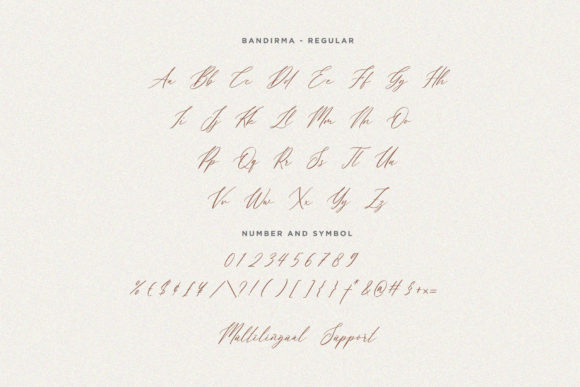 BANDIRMA - REGULAR
Aa Bb Cc Dd Ee Ff Gg Hh
Ii Jj Kk Ll Mm Nn Oo
Pp Qq Rr Ss Tt Uu
Vv Ww Xx Yy Zz
NUMBER AND SYMBOL
0 1 2 3 4 5 6 7 8 9
% € $ ¢ £ ¥ / \ ? ! ( ) [ ] { } f * & @ # § + x =
Multilingual Support